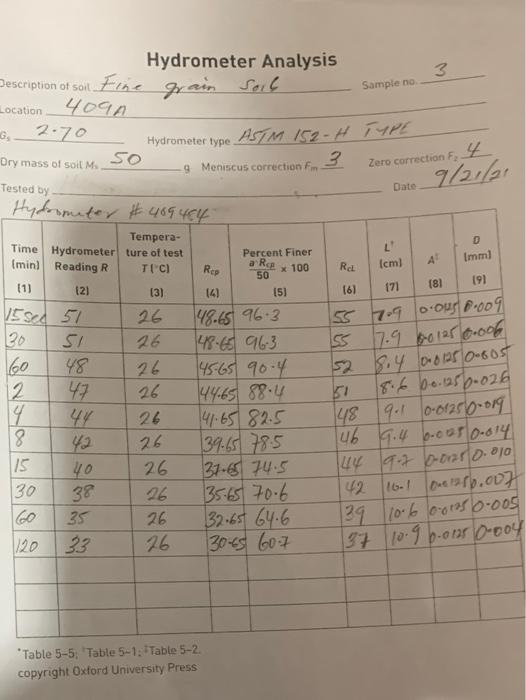 Hydrometer Analysis
Description of soil Fine grain Soil Sample no. 3
Location 409A
Gs 2.70 Hydrometer type ASTM 152-H TYPE
Dry mass of soil Ms 50 g Meniscus correction Fm 3 Zero correction Fz 4
Tested by Date 9/21/21
Hydrometer # 409464
Time (min) (1) Hydrometer Reading R (2) Tempera-ture of test T(°C) (3) Rcp (4) Percent Finer a*Rcp/50 x 100 (5) RcL (6) L† (cm) (7) A‡ (8) D (mm) (9)
15sec 51 26 48.65 96.3 55 7.9
30 51 26 48.65 96.3 55 7.9 0.0125 0.006
60 48 26 45.65 90.4 52 8.4 0.0125 0.005
2 47 26 44.65 88.4 51 8.6 0.0125 0.026
4 44 26 41.65 82.5 48 9.1 0.0125 0.019
8 42 26 39.65 78.5 46 9.4 0.0125 0.014
15 40 26 37.65 74.5 44 9.7 0.0125 0.010
30 38 26 35.65 70.6 42 10.1 0.0125 0.007
60 35 26 32.65 64.6 39 10.6 0.0125 0.005
120 33 26 30.65 60.7 37 10.9 0.0125 0.004
*Table 5-5; †Table 5-1; ‡Table 5-2.
copyright Oxford University Press